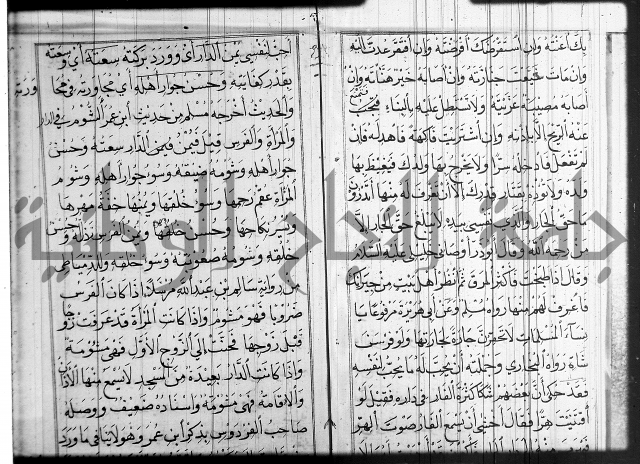 بك أعنته وان استقرضك أقرضته وان افتقر عدت اليه
وان مات شيعت جنازته وان أصابه خير هنأته وان
أصابه مصيبة عزيته ولا تستطل عليه بالبناء فتحجب
عنه الريح الا باذنه وان اشتريت فاكهة فاهد له فان
لم تفعل فادخله سرا ولا يخرج بها ولدك فيغيظ بها
ولده ولا تؤذه بقتار قدرك الا أن تغرف له منها أتدرون
ما حق الجار والذي نفسي بيده لا يبلغ حق الجار الا
من رحمه الله وقال أبو ذر أوصاني خليلي عليه السلام
وقال اذا طبخت فأكثر المرق ثم انظر أهل بيت من جيرانك
فاغرف لهم منها رواه مسلم وعن أبي هريرة مرفوعا يا
نساء المسلمات لا تحقرن جارة لجارتها ولو فرسن
شاة رواه البخاري وجملته أن يحب له ما يحب لنفسه
فقد حكى أن بعضهم شكا كثرة الفار في داره فقيل لو
اقتنيت هرا فقال أخشى أن يسمع الفار صوت الهر
أحق لنفسي من الدار أي وورد بركته سعتة أي وسعته
بقدر كفايته وحسن جوار أهله أي مجاورته في
والحديث أخرجه مسلم من حديث ابن عمر الشؤم في الدار
والمرأة والفرس قيل فيمن الدار سعته وحسن
جوار أهله وشومه ضيقه وسوء جوار أهله وشوم
المرأة عقم رحمها وسوء خلقها ويمنها خفة مهرها
ويسر نكاحها وحسن خلقها ويمن الفرس ذله وحسن
خلقه وشومه صعوبته وسوء خلقه وللدمياطي
من رواية سالم بن عبد الله مرسلا اذا كان الفرس
ضروبا فهو مشوم واذا كانت المرأة قد عرفت زوجا
قبل زوجها فحنت الى الزوج الأول فهي مشومة
واذا كانت الدار بعيدة من المسجد لا يسمع منها الأذان
والاقامة فهي مشومة واسناده ضعيف ووصله
صاحب الفردوس بذكر ابن عمر وهو لا ينافي ما ورد
جامعة النجاح الوطنية